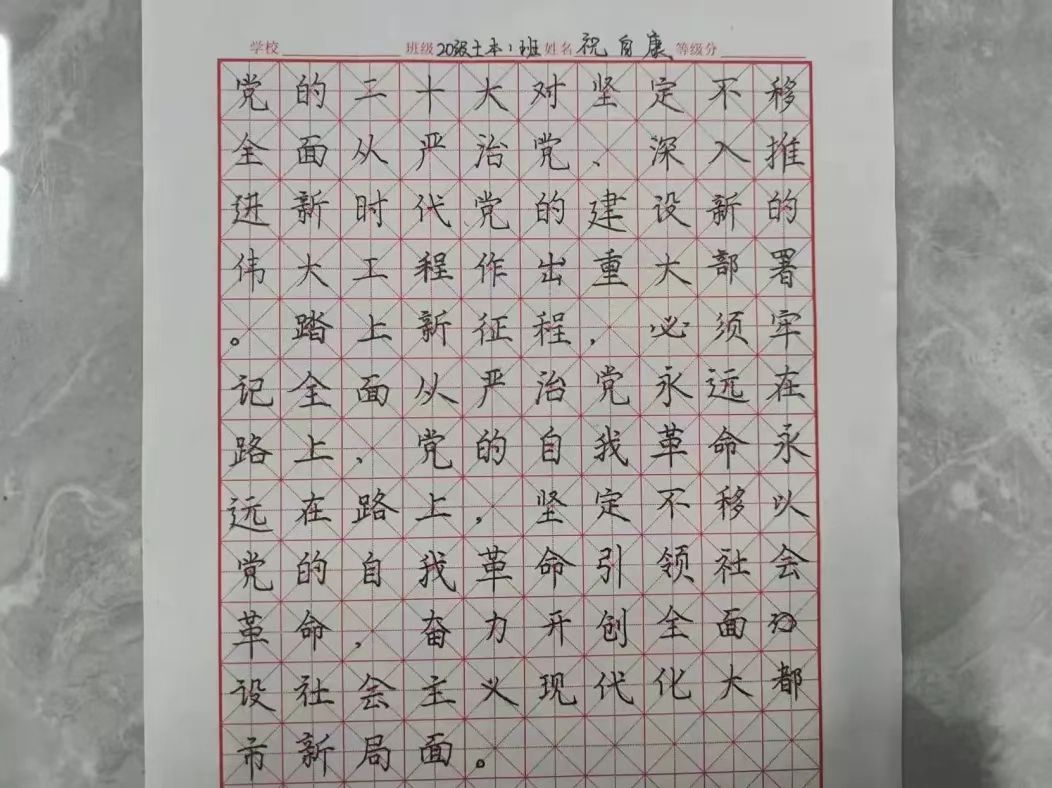 学校 班级 20级土本1班 姓名 祝自康 等级分
党的二十大对坚定不移
全面从严治党、深入推
进新时代党的建设新的
伟大工程作出重大部署
。踏上新征程,必须牢
记全面从严治党永远在
路上、党的自我革命永
远在路上,坚定不移以
党的自我革命引领社会
革命,奋力开创全面
设社会主义现代化大都
市新局面。